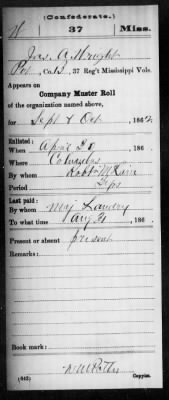 (Confederate.)
W 37 Miss.
Jas. A. Wright
Pvt, Co. B, 37 Reg't Mississippi Vols.
Appears on
Company Muster Roll
of the organization named above,
for Sept & Oct, 1862.
Enlisted:
When April 28, 186 .
Where Columbus
By whom Robt McLain
Period 2 yrs
Last paid:
By whom Maj Landry
To what time Aug 31, 186 .
Present or absent present
Remarks:
Book mark:
(642) Copyist.